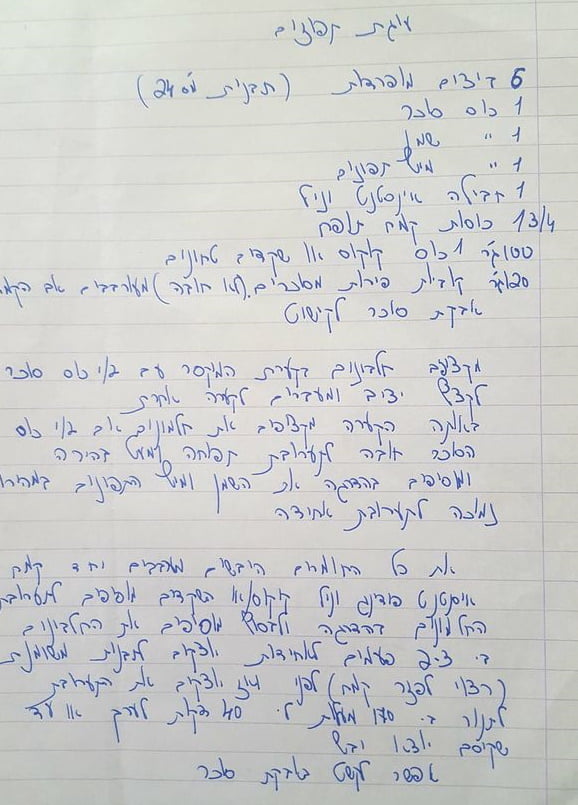 עוגת תפוזים
6 ביצים מופרדות (תבנית מס 24)
1 כוס סוכר
1 " שמן
1 " מיץ תפוזים
1 חבילה אינסטנט וניל
1 3/4 כוסות קמח תופח
100 גר' 1 כוס קוקוס או שקדים טחונים
120 גר' קוביות פירות מסוכרים (לא חובה) מעורבבים עם הקמח
אבקת סוכר לקישוט
מקציפים חלבונים בקערת המיקסר עם 1/2 כוס סוכר
לקצף יציב ומעבירים לקערה אחרת
באותה הקערה מקציפים את חלמונים עם 1/2 כוס
הסוכר לתערובת תפוחה ובהירה
ומוסיפים בהדרגה את השמן ומיץ התפוזים במהירות
נמוכה לתערובת אחידה
את כל החומרים היבשים מערבבים יחד קמח
אינסטנט פודינג וניל קוקוס/או השקדים מוסיפים לתערובת
החלמונים בהדרגה ולבסוף מוסיפים את החלבונים
ב. 2-3 פעמים לאחידות יוצקים לתבנית משומנת
(רצוי לפזר קמח) לפני יוצקים את התערובת
לתנור ב. 170 מעלות ל. 40 דקות לערך או עד
שקיסם יוצא יבש
אפשר לקשט באבקת סוכר